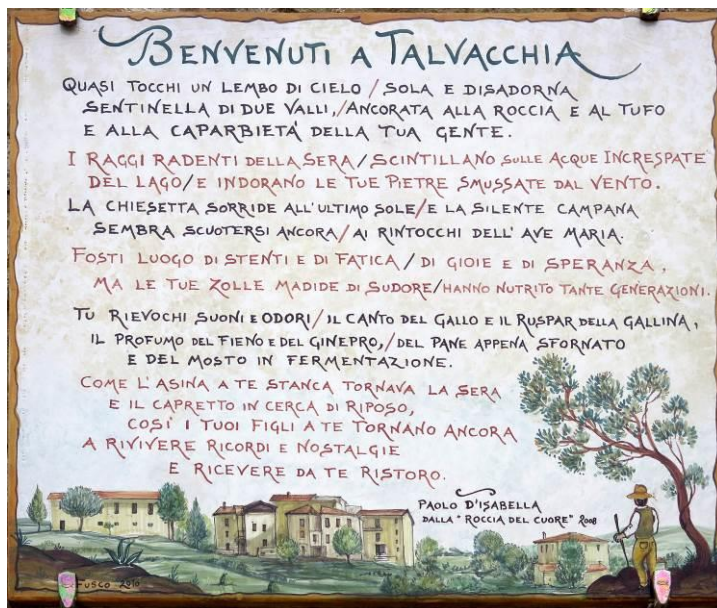 BENVENUTI A TALVACCHIA
QUASI TOCCHI UN LEMBO DI CIELO / SOLA E DISADORNA
SENTINELLA DI DUE VALLI,/ANCORATA ALLA ROCCIA E AL TUFO
E ALLA CAPARBIETA' DELLA TUA GENTE.
I RAGGI RADENTI DELLA SERA/SCINTILLANO SULLE ACQUE INCRESPATE
DEL LAGO/E INDORANO LE TUE PIETRE SMUSSATE DAL VENTO.
LA CHIESETTA SORRIDE ALL'ULTIMO SOLE/E LA SILENTE CAMPANA
SEMBRA SCUOTERSI ANCORA/AI RINTOCCHI DELL'AVE MARIA.
FOSTI LUOGO DI STENTI E DI FATICA/DI GIOIE E DI SPERANZA,
MA LE TUE ZOLLE MADIDE DI SUDORE/HANNO NUTRITO TANTE GENERAZIONI.
TU RIEVOCHI SUONI E ODORI/IL CANTO DEL GALLO E IL RUSPAR DELLA GALLINA,
IL PROFUMO DEL FIENO E DEL GINEPRO,/DEL PANE APPENA SFORNATO
E DEL MOSTO IN FERMENTAZIONE.
COME L'ASINA A TE STANCA TORNAVA LA SERA
E IL CAPRETTO IN CERCA DI RIPOSO,
COSI' I TUOI FIGLI A TE TORNANO ANCORA
A RIVIVERE RICORDI E NOSTALGIE
E RICEVERE DA TE RISTORO.
PAOLO D'ISABELLA
DALLA "ROCCIA DEL CUORE" 2008
FUSCO 2010